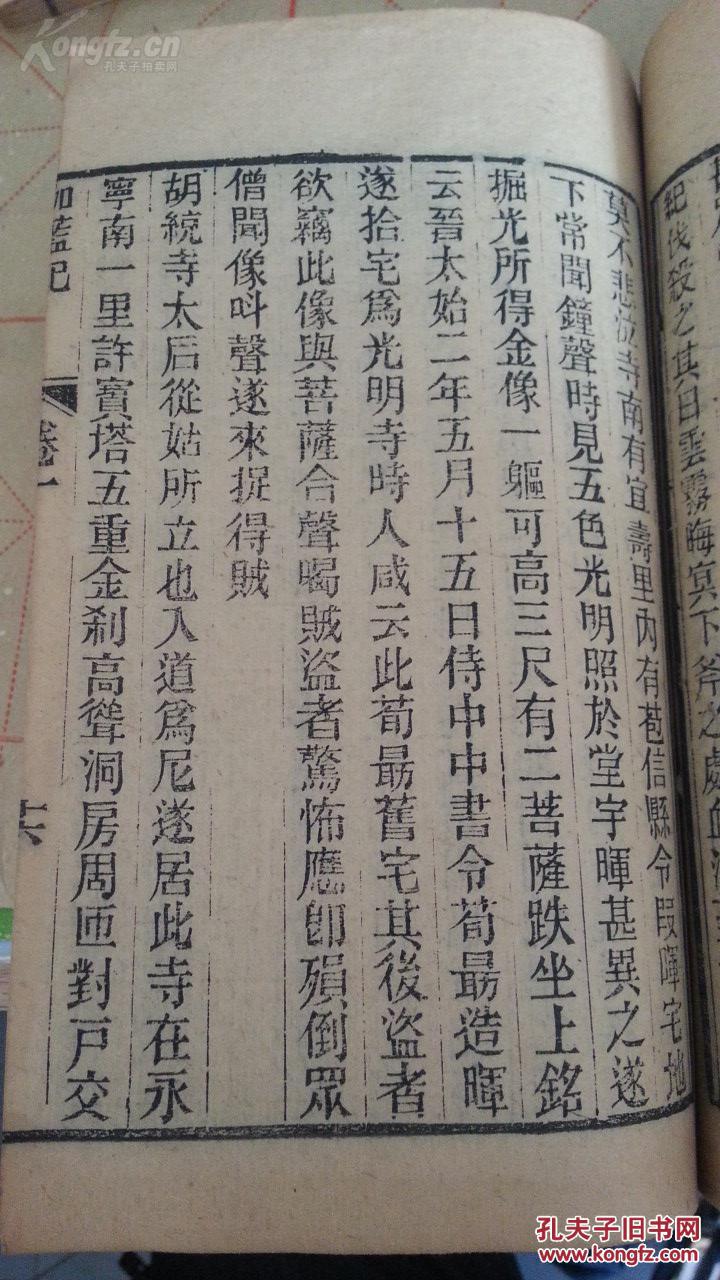 紀伐殺之其日雲霧晦冥下斧之處血流
莫不悲泣寺南有宜壽里內有苞信縣令段暉宅地
下常聞鐘聲時見五色光明照於堂宇暉甚異之遂
掘光所得金像一軀可高三尺有二菩薩趺坐上銘
云晉太始二年五月十五日侍中中書令荀勗造暉
遂捨宅為光明寺時人咸云此荀勗舊宅其後盜者
欲竊此像與菩薩合聲喝賊盜者驚怖應即殞倒眾
僧聞像叫聲遂來捉得賊
胡統寺太后從姑所立也入道為尼遂居此寺在永
寧南一里許寶塔五重金剎高聳洞房周匝對戶交
伽藍記
卷一
十六
Kongfz.cn
孔夫子拍卖网
孔夫子旧书网
www.kongfz.com